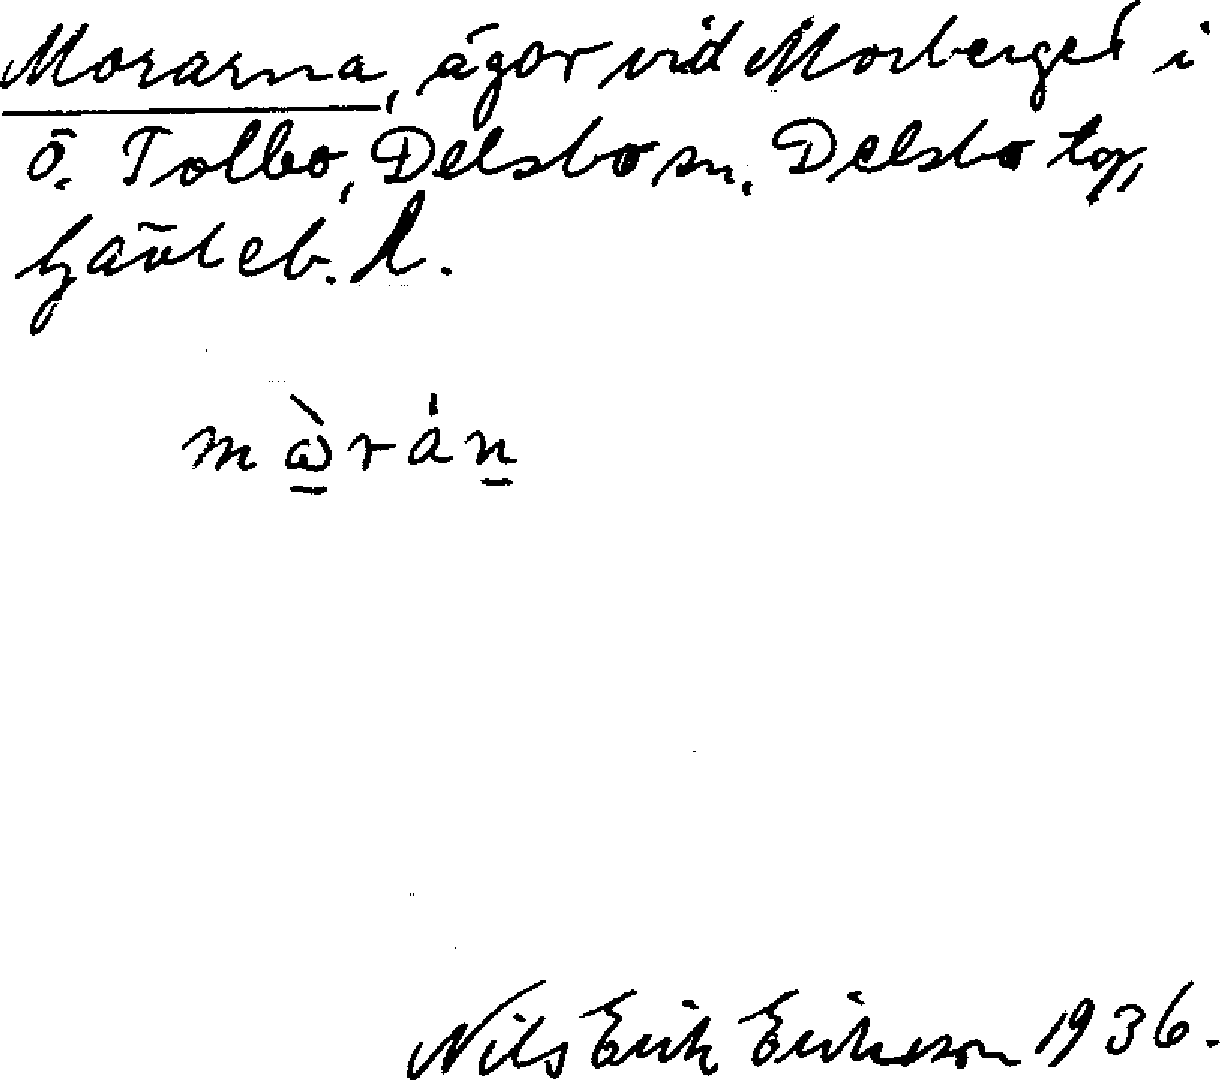 Morarna, ägor vid Morberget i
ö. Tolbo, Delsbo sn. Delsbo tg,
Gävleb. l.
mɷ̀rán
Nils Erik Eriksson 1936.